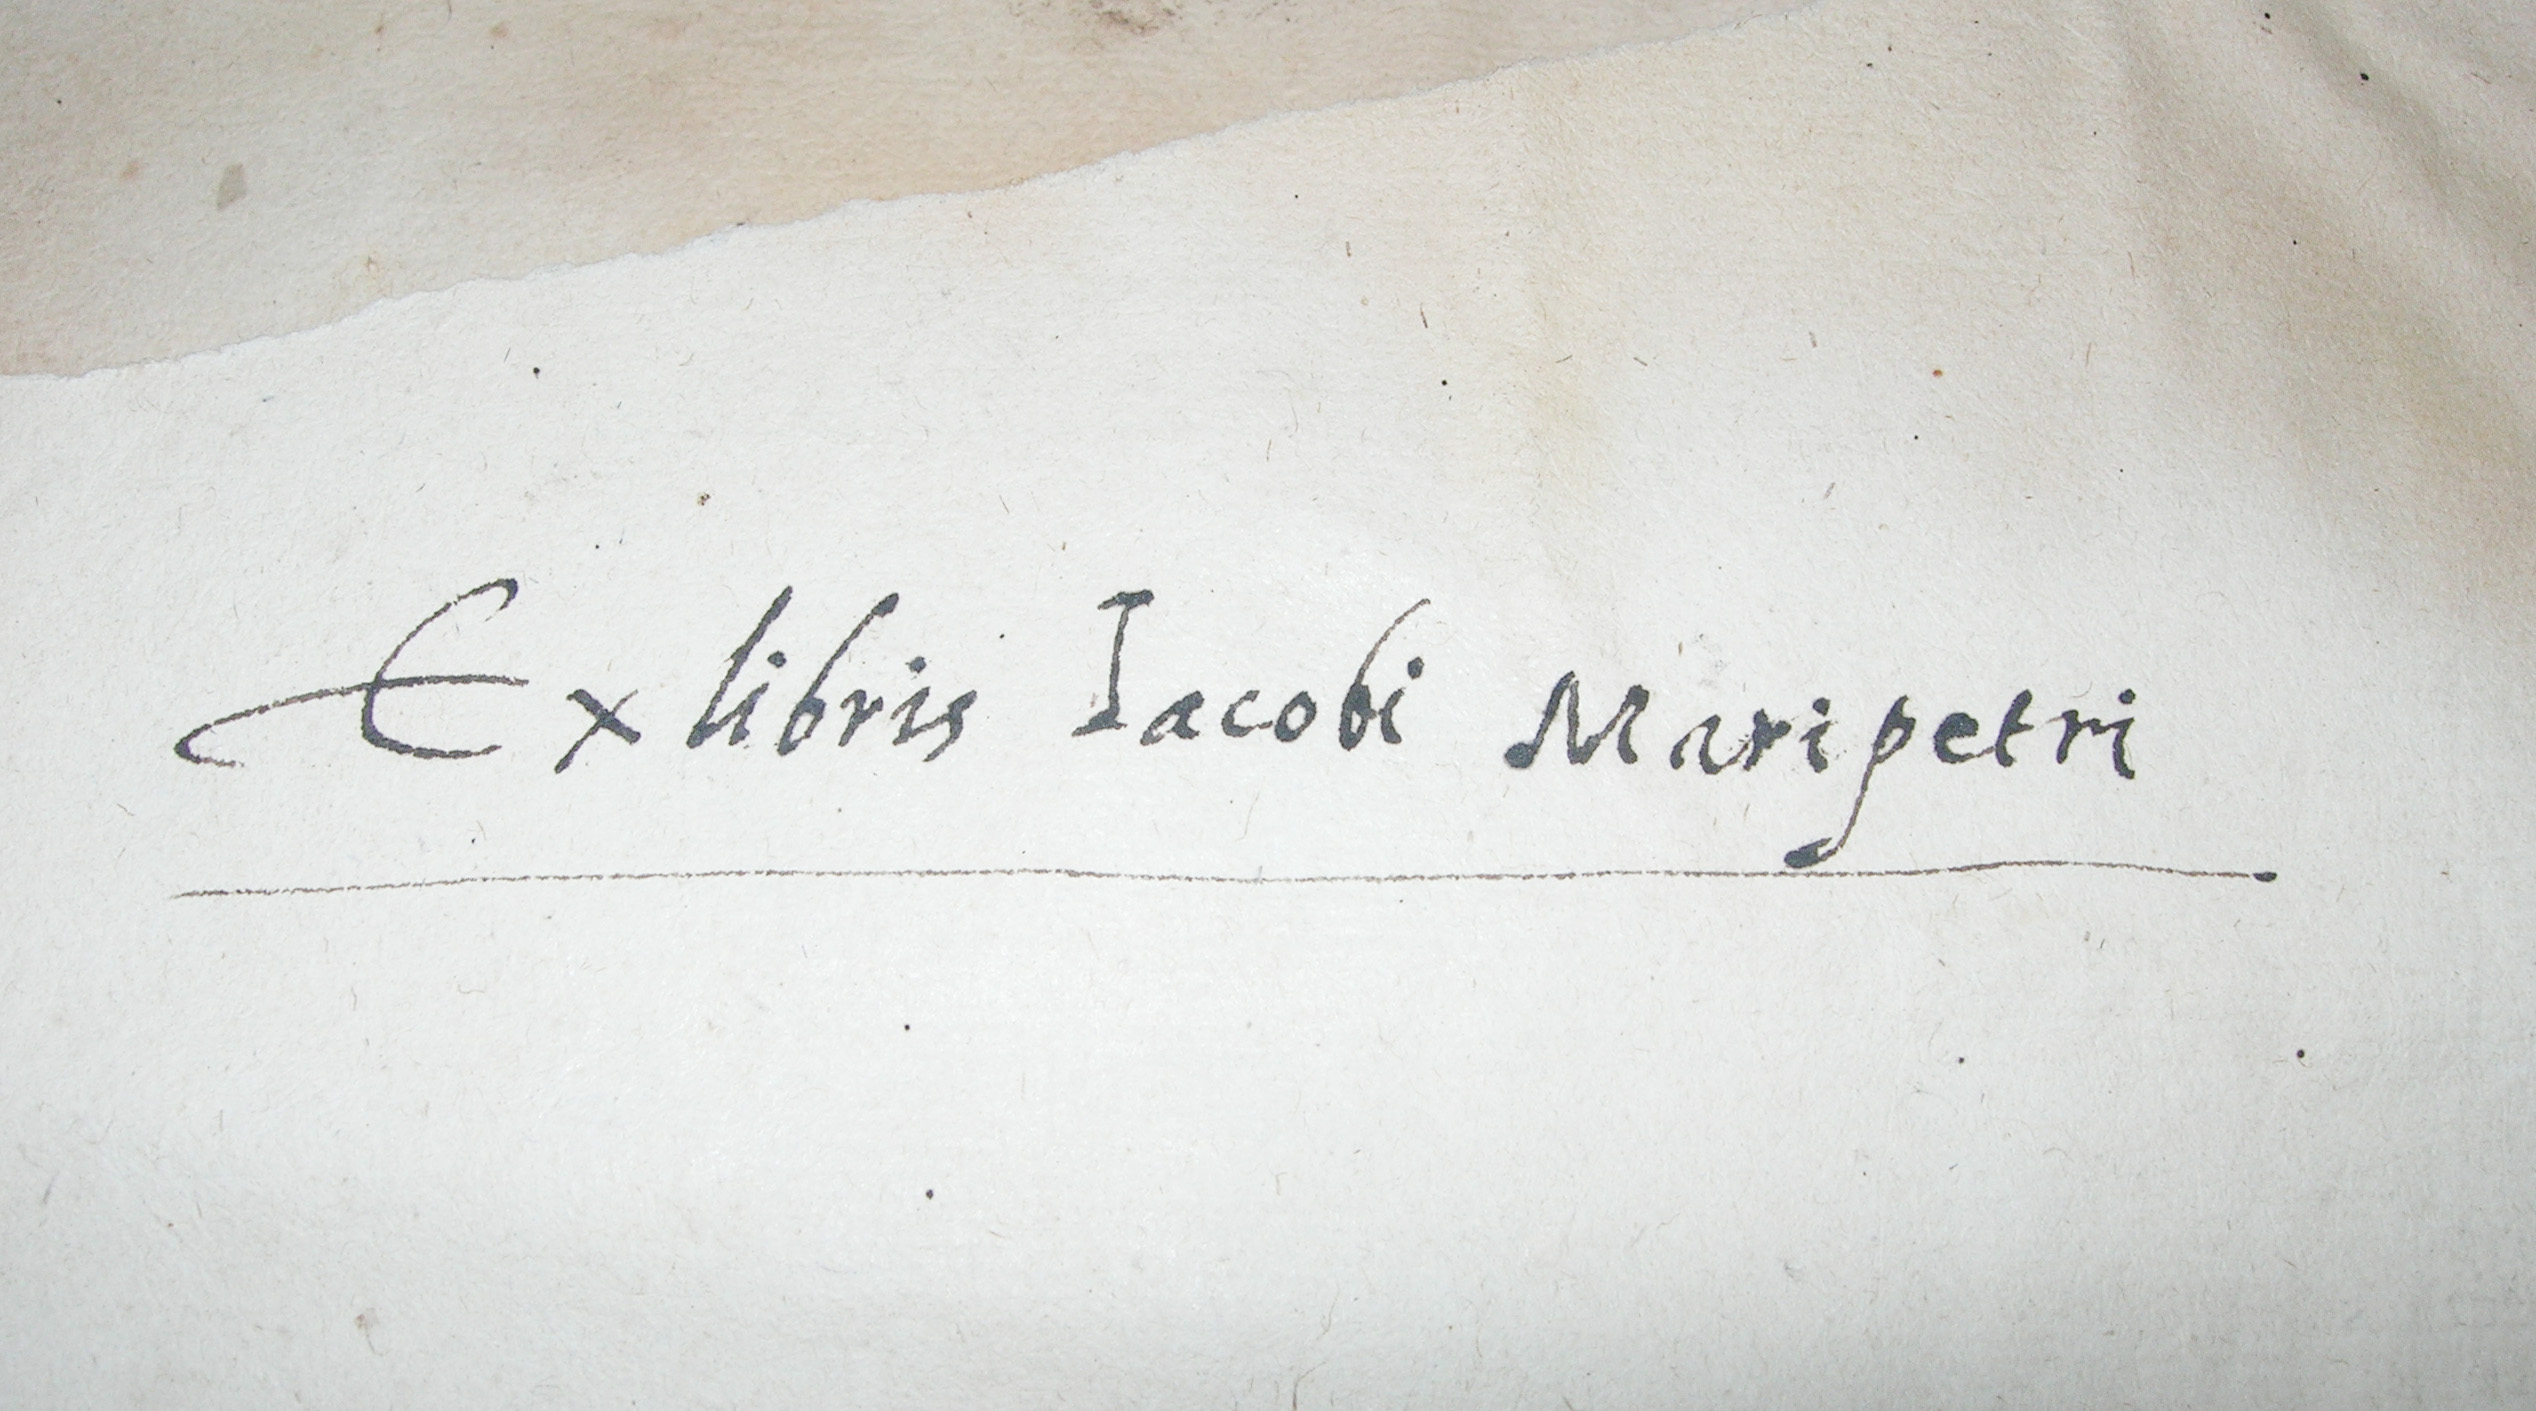 Ex libris Iacobi Maripetri